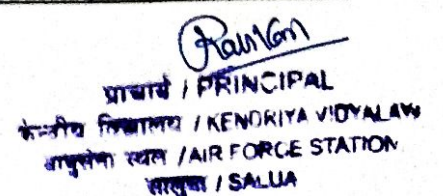 प्राचार्य / PRINCIPAL
केन्द्रीय विद्यालय / KENDRIYA VIDYALAYA
वायुसेना स्थल /AIR FORCE STATION
सालुवा / SALUA